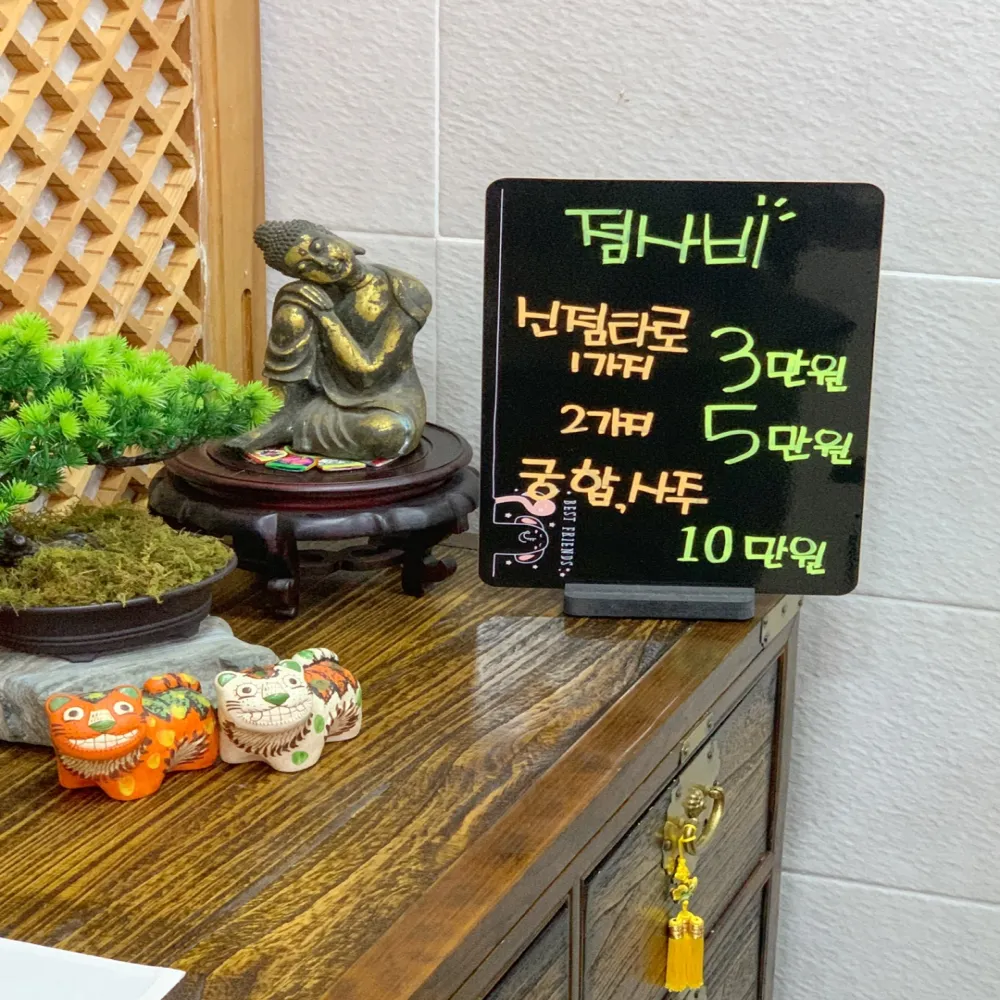 점사비
신점타로
1가지 3만원
2가지 5만원
궁합, 사주
10만원
BEST FRIENDS